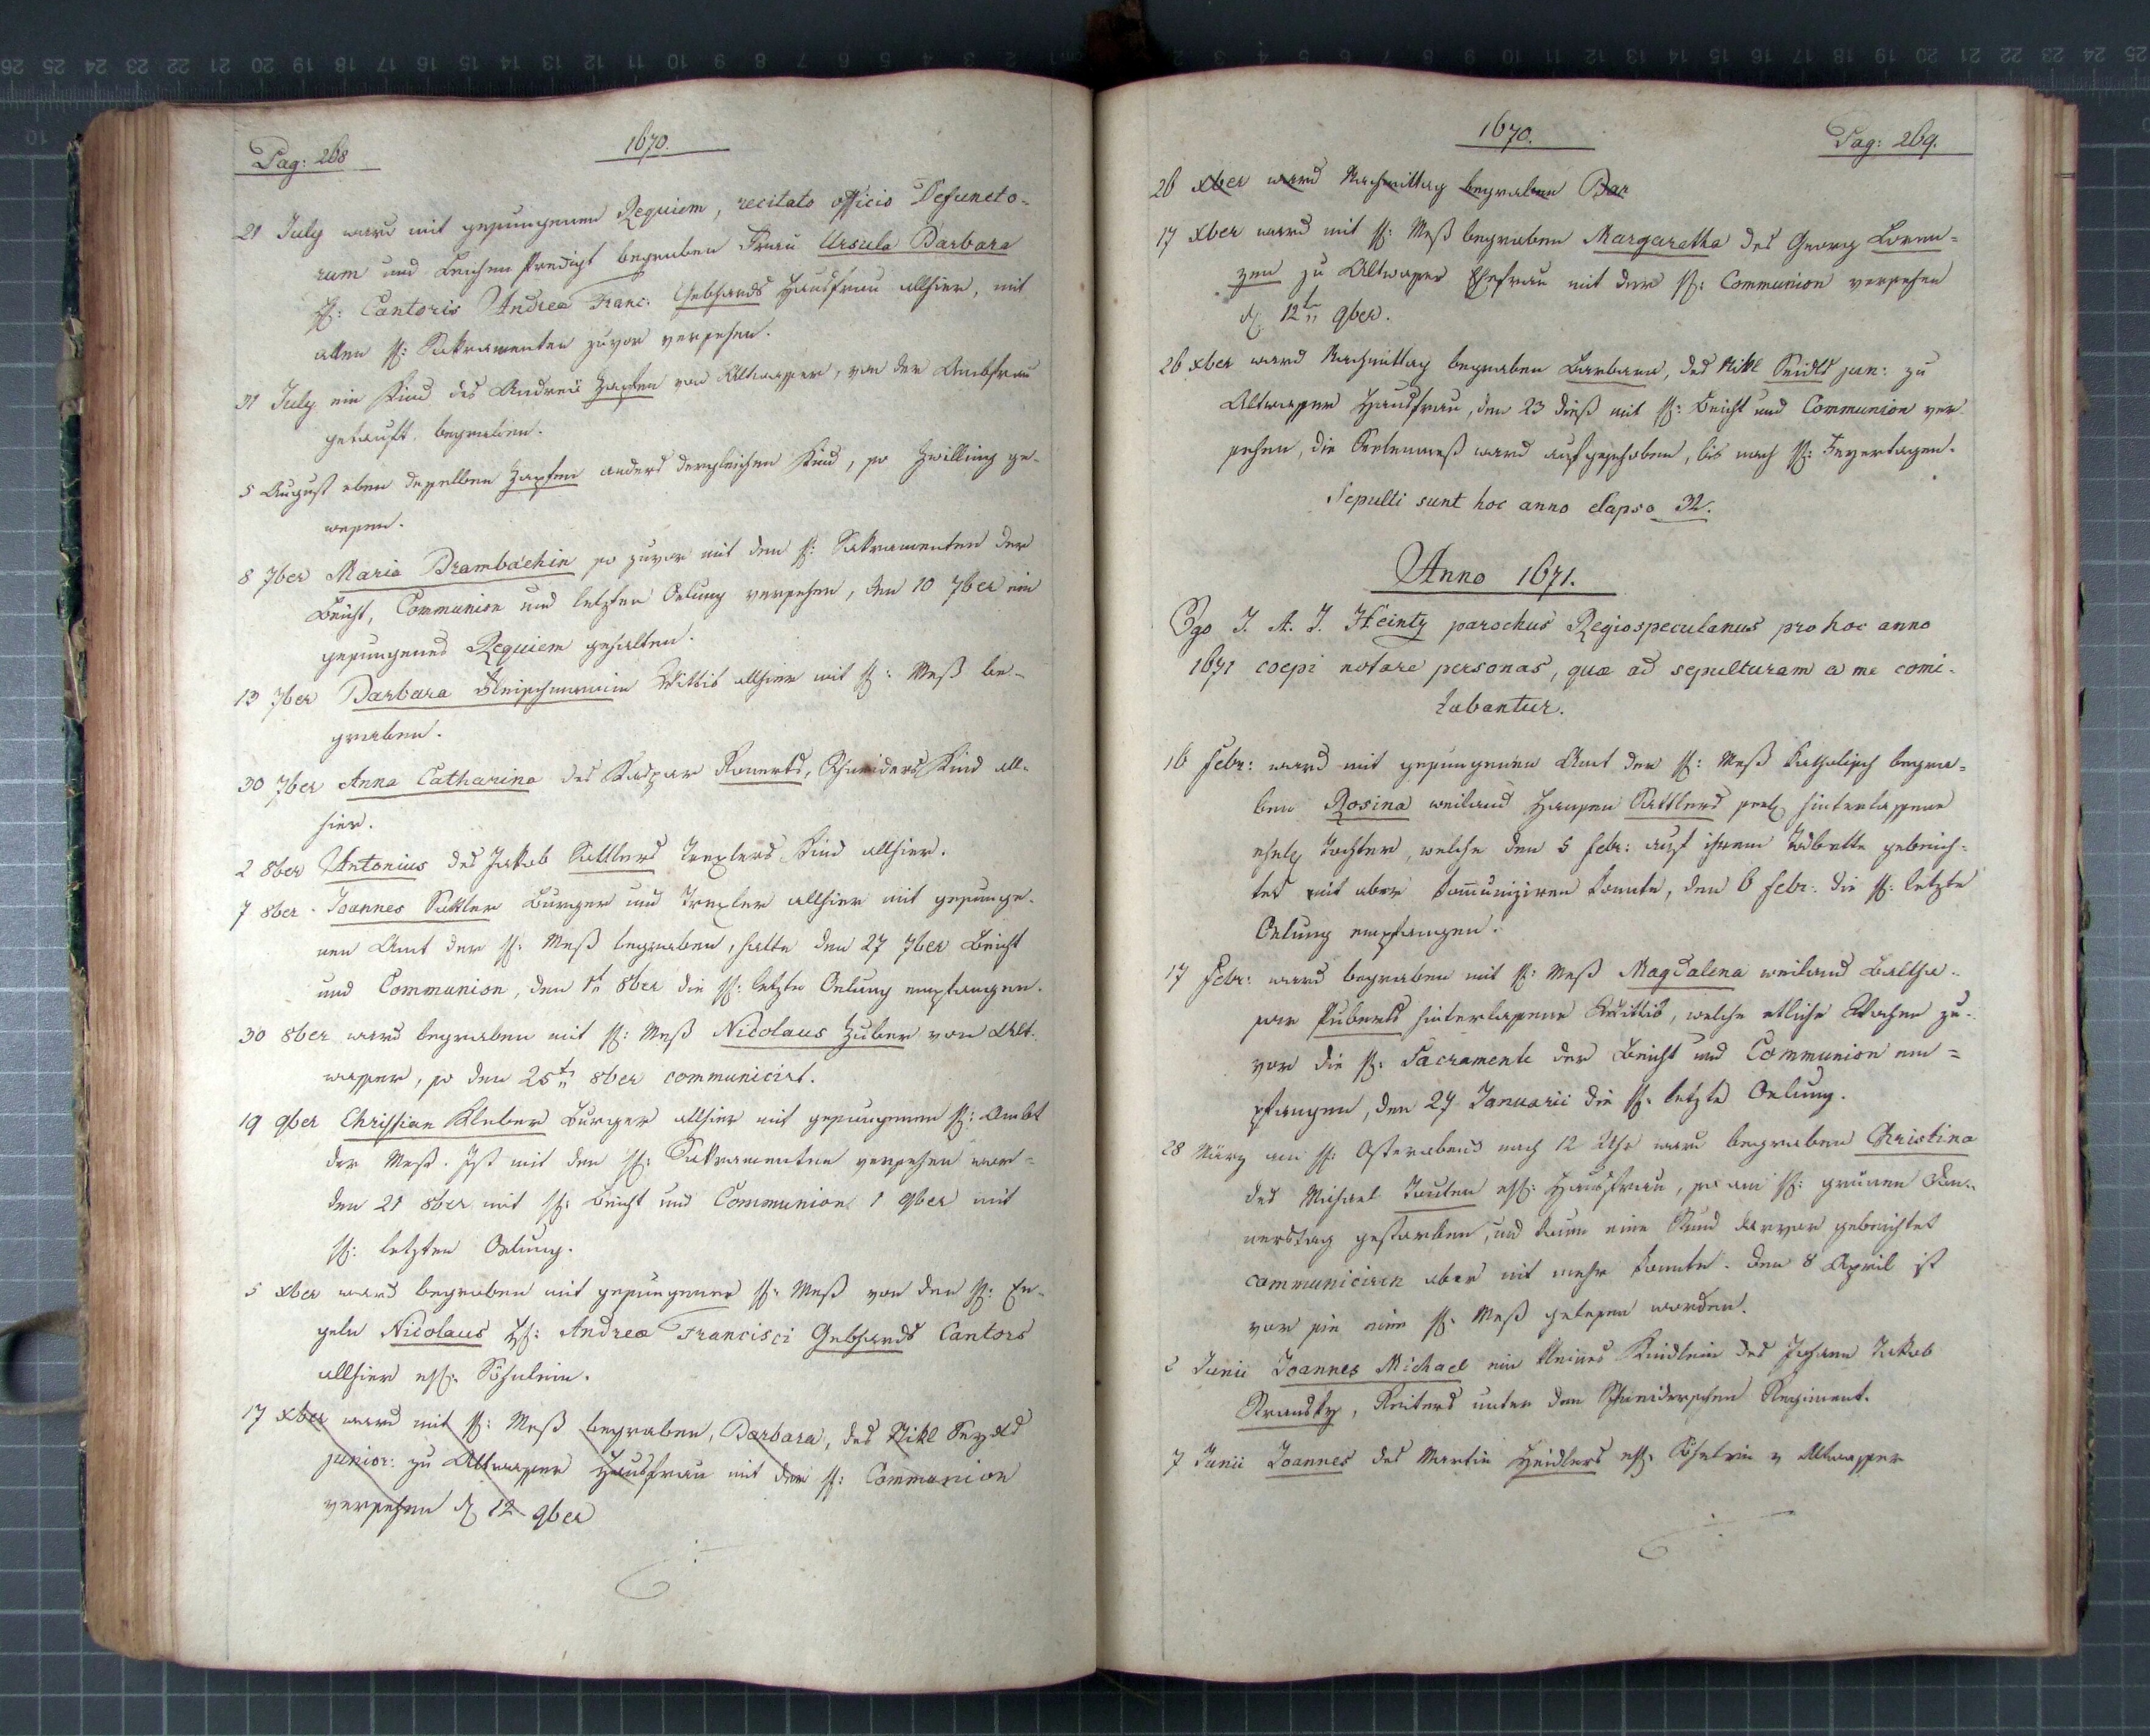 Pag: 268
1670.
21 July ward mit gesungenem Requiem, recitato officio Defuncto-
rum und Leichen Predigt begraben Frau Ursula Barbara
H: Cantoris Andreæ Franc: Gebhards Hausfrau allhier, mit
allen h: Sakramenten zuvor versehen.
31 July ein Kind des Andreä Hapten von Altwasser, von der Ambfrau
getauft begraben.
5 August eben desselben Hapten anders dergleichen Kind, so Zwilling ge-
wesen.
8 7ber Maria Brambächin so zuvor mit den h: Sakramenten der
Beicht, Communion und letzten Oelung versehen, den 10 7ber ein
gesungenes Requiem gehalten.
13 7ber Barbara Fleischmannin Wittib allhier mit h: Meß be-
graben.
30 7ber Anna Catharina des Kaspar Schneiders Kind all-
hier.
2 8ber Antonius des Jakob Sattlers Trexlers Kind allhier.
7 8ber Joannes Sattler Burger und Trexler allhier mit gesunge-
nen Amt der h: Meß begraben, hatte den 27 7ber Beicht
und Communion, den 1t 8ber die h: letzte Oelung empfangen.
30 8ber ward begraben mit h: Meß Nicolaus Huber von Alt-
wasser, so den 25tn 8ber communicirt.
19 9ber Christian Kleber Burger allhier mit gesungenen h: Ambt
der Meß. Ist mit den h: Sakramenten versehen wor-
den 21 8ber mit h: Beicht und Communion 1 9ber mit
h: letzten Oelung.
5 Xber ward begraben mit gesungener h: Meß von den h: En-
geln Nicolaus H: Andreæ Francisci Gebhards Cantors
allhier ehl: Söhnlein.
17 Xber ward mit h: Meß begraben, Barbara, des Nikl Seydls
junior: zu Altwasser Hausfrau mit der h: Communion
versehen d 12 9ber
1670.
Pag: 269.
26 Xber ward Nachmittag begraben Bar
17 Xber ward mit h: Meß begraben Margaretha des Georg Loren-
zen zu Altwasser Ehefrau mit der h: Communion versehen
d 12tn 9ber.
26 Xber ward Nachmittag begraben Barbara, des Nikl Seidls jun: zu
Altwasser Hausfrau, den 23 dieß mit h: Beicht und Communion ver
sehen, die Seelenmeß ward aufgeschoben, bis nach h: Feyertagen.
Sepulti sunt hoc anno elapso 32.
Anno 1671.
Ego J. A. J. Heintz parochus Regiospeculanus pro hoc anno
1671 coepi notare personas, quæ ad sepulturam a me comi-
tabantur.
16 Febr: ward mit gesungenen Amt der h: Meß katholisch begra-
ben Rosina weiland Hansen Sattlers seel hinterlassene
ehel Tochter, welche den 5 Febr: auf ihrem Todbette gebeich-
tet nit aber kommuniziren konnte, den 6 Febr: die h: letzte
Oelung empfangen.
17 Febr: ward begraben mit h: Meß Magdalena weiland Baltha-
sar hinterlassene Wittib, welche etliche Wochen zu-
vor die h: Sacramente der Beicht und Communion em-
pfangen, den 27 Januarii die h: letzte Oelung.
28 März am h: Osterabend nach 12 Uhr ward begraben Christina
des Michael Tauten ehl: Hausfrau, so am h: grünen Don-
nerstag gestorben, und kaum eine Stund darvor gebeichtet
communiciren aber nit mehr konnte. Den 8 April ist
vor sie eine h: Meß gelesen worden.
Junii Joannes Michael ein kleines Kindlein des Johann Jakob
Kransky, Reiters unter den Schneiderschen Regiment.
7 Junii Joannes des Martin Heidlers ehl: Söhnlein v Altwasser